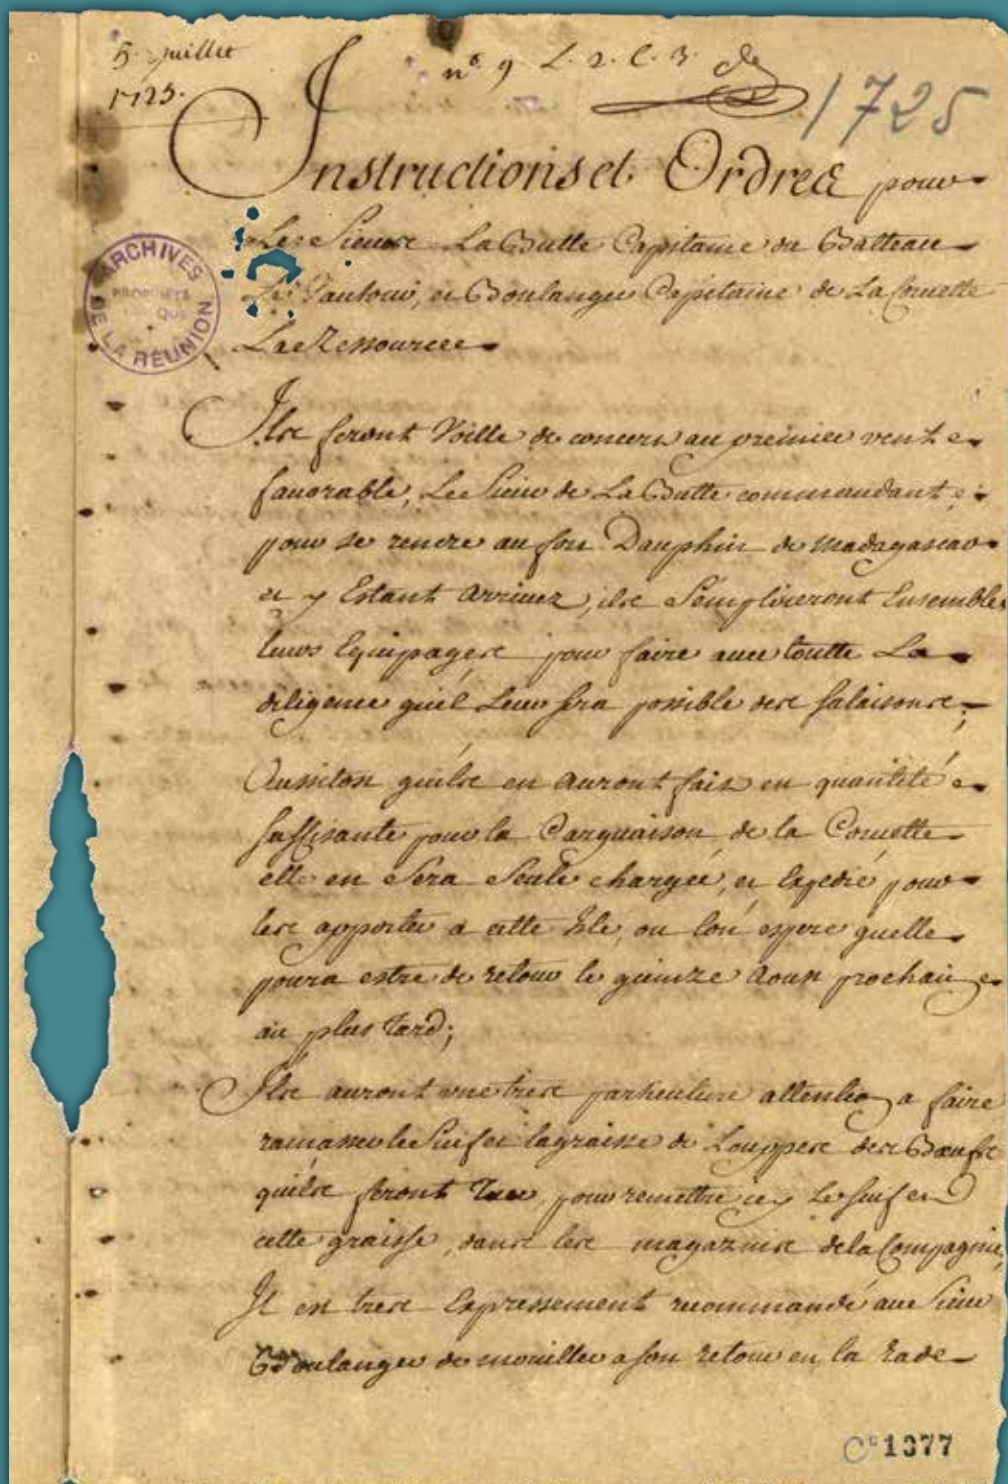 5. Juillet
1725.
n.º 9 L. 2. C. 3.
1725
Instructions et Ordres pour
Les Sieurs La Butte Capitaine du Batteau
Le Vautour, et Boulanger Capitaine de La Corvette
La Ressource
ARCHIVES DE LA RÉUNION
PROPRIÉTÉ
Ils feront Voille de concert au premier vent
favorable, Le Sieur de La Butte commandant,
pour se rendre au fort Dauphin de Madagascar
et y Estant Arrivez, ils Semploieront Ensemble
leurs Equipages pour faire avec toutte La
diligence quil Leur sera possible des salaisons;
Aussitost quils en auront fait en quantité
suffisante pour la Carguaison de la Corvette
elle en Sera Seule chargée, et Expedié pour
les apporter a cette Isle, ou lon espere quelle
poura estre de retour le quinze Aoust prochain
au plus tard;
Ils auront une tres particuliere attention a faire
ramasser le Suif et la graisse de Louppes des Bœufs
quils feront Tuer, pour remettre icy Le suif et
cette graisse, dans les magazins de la Compagnie,
Il est tres Expressement recommandé au Sieur
Boulanger de mouiller a son retour en la rade
C° 1377